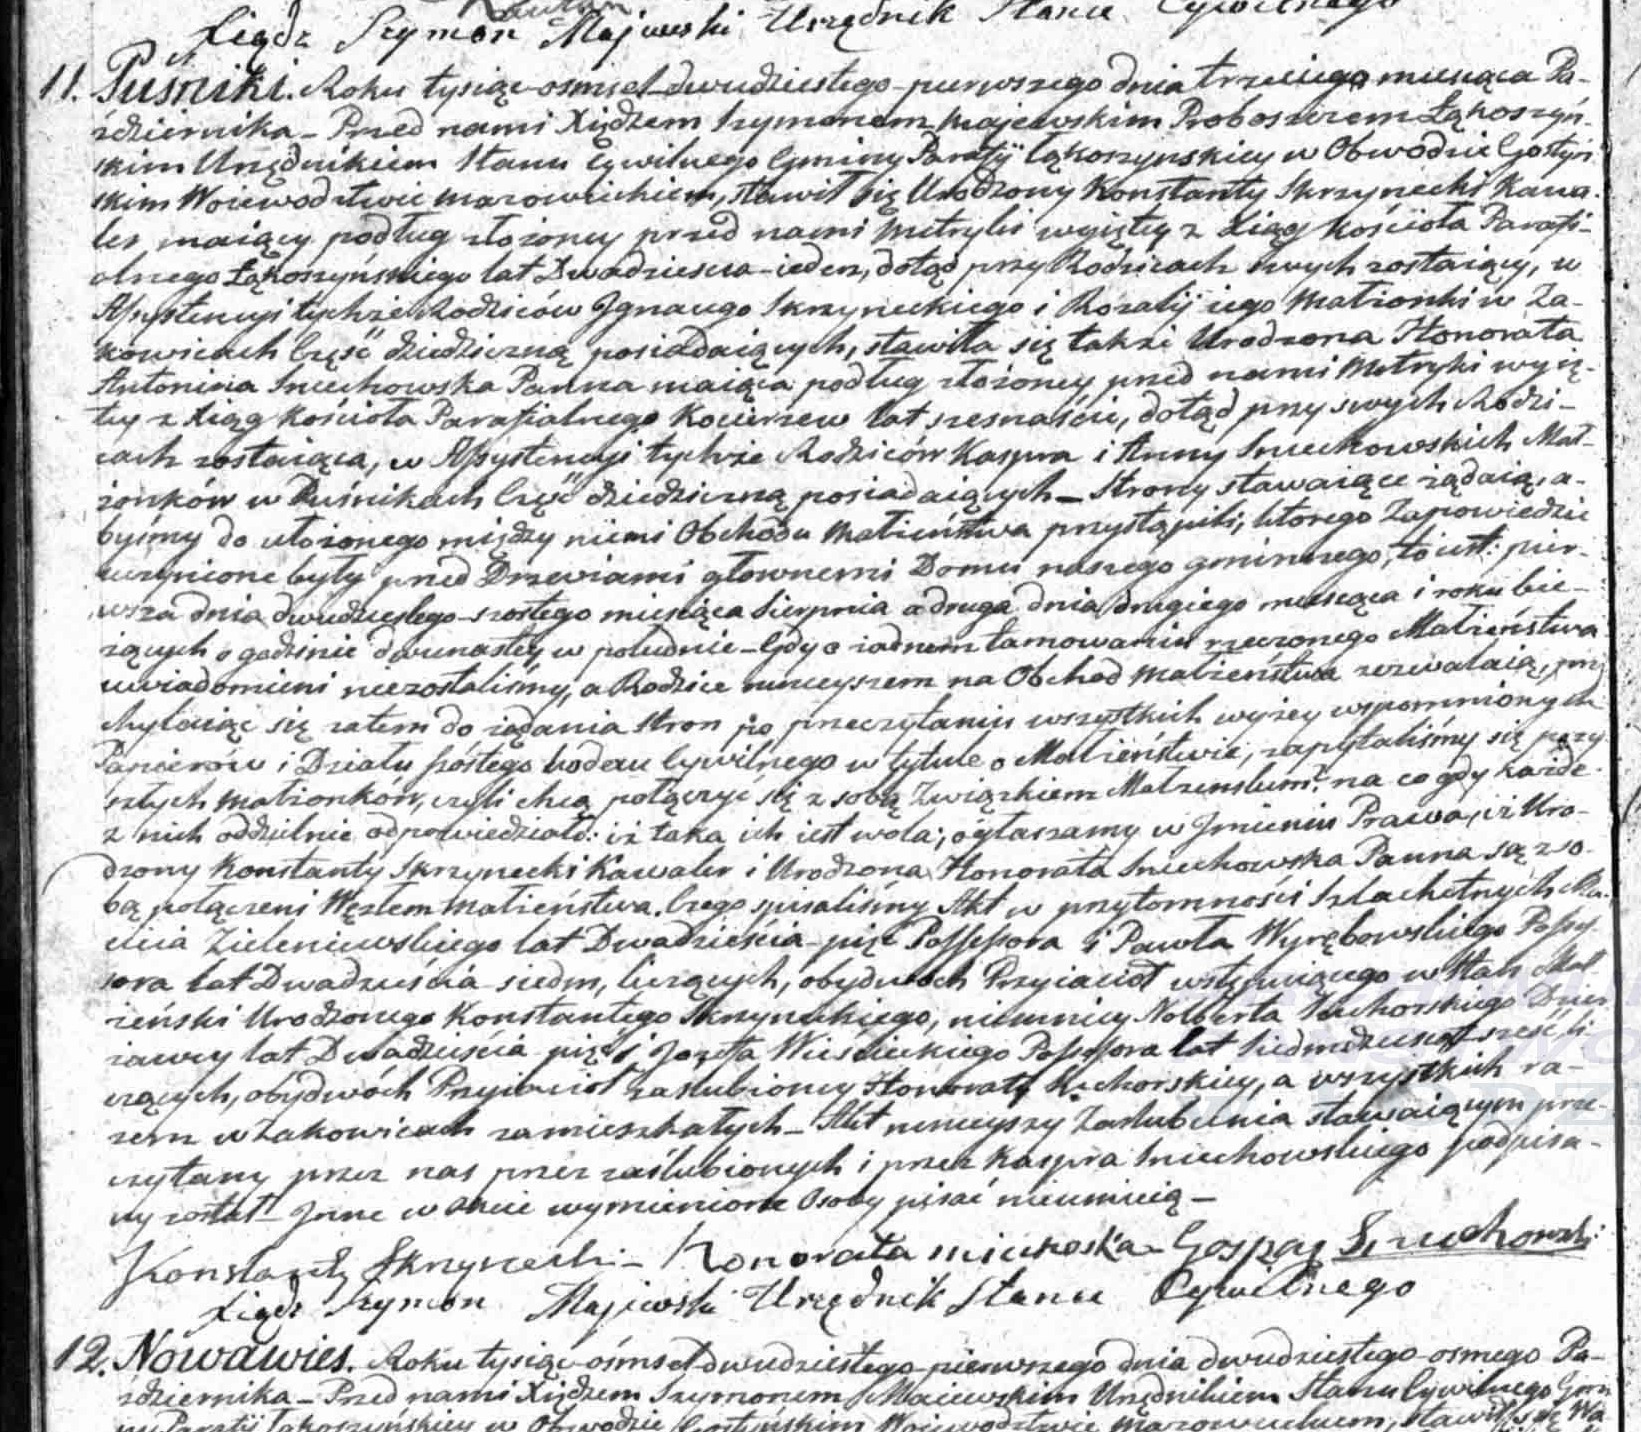 Xiądz Szymon Majewski Urzędnik Stanu Cywilnego
11. Puśniki. Roku tysiąc osmset dwudziestego pierwszego dnia trzeciego miesiąca Pa-
ździernika – Przed nami Xiędzem Szymonem Majewskim Proboszczem Łąkoszyń-
skim Urzędnikiem Stanu Cywilnego Gminy Parafij Łąkoszynskiey w Obwodzie Gostyń-
skim Woiewodztwie Mazowieckiem, stawił się Urodzony Konstanty Skrzynecki Kawa-
ler, maiący podług złożoney przed nami Metryki wyiętey z Xiąg Kościoła Parafi-
alnego Łąkoszyńskiego lat Dwadzieścia ieden, dotąd przy Rodzicach swych zostaiący, w
Assystencyi tychże Rodziców Ignacego Skrzyneckiego i Rozalij iego Małżonki w Ża-
kowicach Część dziedziczną posiadaiących, stawiła się także Urodzona Honorata
Antonina Sniechowska Panna maiąca podług złożoney przed nami Metryki wyię-
tey z Xiąg Kościoła Parafialnego Kocierzew lat szesnaście, dotąd przy swych Rodzi-
cach zostaiąca, w Assystencyi tychże Rodziców Kaspra i Anny Sniechowskich Mał-
żonków w Puśnikach Część dziedziczną posiadaiących – Strony stawaiące żądaią, a-
byśmy do ułożonego między niemi Obchodu Małżeństwa przystąpili, którego Zapowiedzie
uczynione były przed Drzwiami głownemi Domu naszego gminnego, to iest: pier-
wsza dnia dwudziestego szostego miesiąca Sierpnia a druga dnia drugiego miesiąca i roku bie-
żących o godzinie dwunastey w południe – Gdy o żadnem tamowaniu rzeczonego Małżeństwa
uwiadomieni niezostaliśmy, a Rodzice ninieyszem na Obchod Małżeństwa zezwalaią, przy
chylaiąc się zatem do żądania Stron po przeczytaniu wszystkich wyżey wspomnionych
Papierów i Działu szóstego Kodexu Cywilnego w tytule o Małżeństwie, zapytaliśmy się przy
szłych Małżonków, czyli chcą połączyć się z sobą Związkiem Małżenskim? na co gdy każde
z nich oddzielnie odpowiedziało: iż taka ich iest wola; ogłaszamy w Imieniu Prawa, iż Uro-
dzony Konstanty Skrzynecki Kawaler i Urodzona Honorata Sniechowska Panna są z so-
bą połączeni Węzłem Małżeństwa. Czego spisaliśmy Akt w przytomności Szlachetnych Ma-
cieia Zieleniewskiego lat Dwadzieścia pięć Possessora i Pawła Wyrębowskiego Posses-
sora lat Dwadzieścia siedm, liczących, obydwoch Przyiaciół wstępuiącego w stan Mał-
żeński Urodzonego Konstantego Skrzyneckiego, niemniey Norberta Kuchorskiego Dzier
żawcy lat Dwadzieścia pięć i Józefa Wiesiecki​ego Possessora lat Siedmdziesiąt sześć li
czących, obydwóch Przyiaciół zaslubioney Honoraty Kuchorskiey, a wszystkich ra-
zem w Żakowicach zamieszkałych – Akt ninieyszy Zaslubienia stawaiącym prze-
czytany przez nas przez zaślubionych i przez Kaspra Sniechowskiego podpisa-
ny został – Inne w akcie wymienione Osoby pisać nieumieią –
Konstanty Skrzynecki – Honorata Gosper Sniechowski
Xiądz Szymon Majewski Urzędnik Stanu Cywilnego
12. Nowawies. Roku tysiąc ośmset dwudziestego pierwszego dnia dwudziestego osmego Pa-
ździernika – Przed nami Xiędzem Szymonem Maiewskim Urzędnikiem Stanu Cywilnego Gmi
ny Parafij Łąkoszyńskiey w Obwodzie Gostyńskim Woiewodztwie Mazowieckiem, stawił się